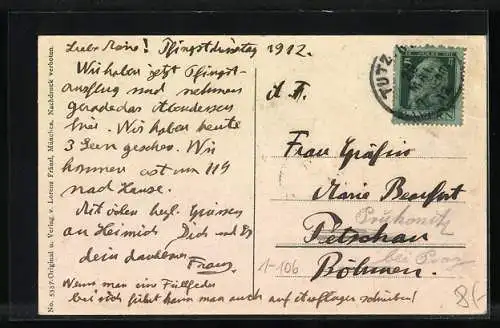 Liebe Marie! Pfingstdienstag 1912.
Wir haben jetzt Pfingst-
ausflug und nehmen
gerade das Abendessen
hier. Wir haben heute
3 Seen gesehen. Wir
kommen erst um 11 h
nach Hause.
Mit vielen herzl. Grüssen
an Heinrich Dich
dein dankbarer
Franz
Wenn man eine Füllfeder
bei sich führt kann man auch auf Ausflügen schreiben!
No. 5537. Original u. Verlag v. Lorenz Fränzl, München. Nachdruck verboten.
TUTZ
5
Frau Gräfin
Marie Beaufort
Petschau
Böhmen.
bei Prag
1-106
8/-